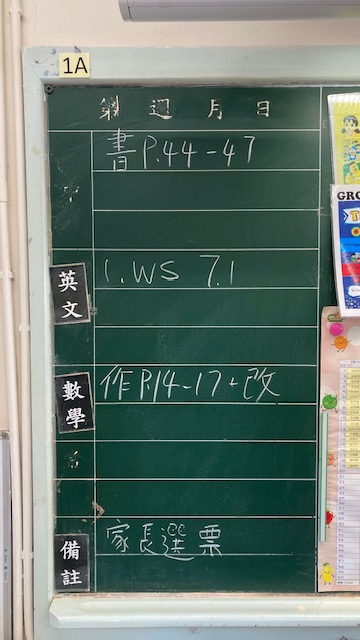 1A
第 週 月 日
書P.44-47
英文
1. WS 7.1
數學
作P.14-17+改
備註
家長選票
GRO